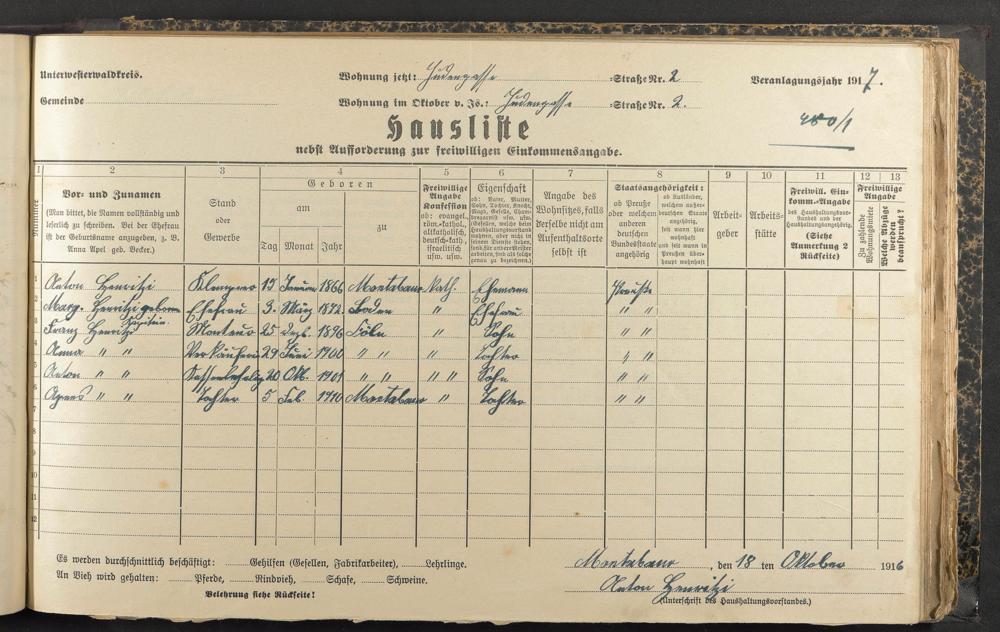 Unterwesterwaldkreis. Wohnung jetzt: Judengasse =Straße Nr. 2 Veranlagungsjahr 1917.
Gemeinde Wohnung im Oktober v. Js.: Judengasse =Straße Nr. 2.
480/1
Hausliste
nebst Aufforderung zur freiwilligen Einkommensangabe.
1 2 3 4 5 6 7 8 9 10 11 12 13
Nummer
Vor- und Zunamen
(Man bittet, die Namen vollständig und
leserlich zu schreiben. Bei der Ehefrau
ist der Geburtsname anzugeben, z. B.
Anna Apel geb. Becker.)
Stand
oder
Gewerbe
Geboren
am
Tag Monat Jahr
zu
Freiwillige
Angabe
Konfession
ob: evangel.,
röm.-kathol.,
altkatholisch,
deutsch-kath.,
israelitisch
usw. usw.
Eigenschaft
ob: Vater, Mutter,
Sohn, Tochter, Knecht,
Magd, Geselle,
usw. (
Gesellen, welche beim
Haushaltungsvorstand
wohnen, aber nicht in
seinem Dienste stehen,
sind als solche
genau zu bezeichnen.)
Angabe des
Wohnsitzes, falls
derselbe nicht am
Aufenthaltsorte
selbst ist
Staatsangehörigkeit:
ob Preuße
oder welchem
anderen
deutschen
Bundesstaate
angehörig
ob Ausländer,
welchem außer-
deutschen Staate
angehörig,
seit wann hier
wohnhaft
und seit wann in
Preußen über-
haupt wohnhaft
Arbeit-
geber
Arbeits-
stätte
Freiwill. Ein-
komm.-Angabe
des Haushaltungsvor-
standes und der
Haushaltungsangehörig.
(Siehe
Anmerkung 2
Rückseite)
Freiwillige
Angabe
Zu zahlende
Wohnungsmiete
Welche Abzüge
werden
beansprucht?
1 Anton Henritzi Klempner 15 Januar 1866 Montabaur Kath. Ehemann Preuße
2 Marg. Henritzi geborne 3. März 1872 Baden " Ehefrau " "
Ehefrau
3 Franz Henritzi Monteur 25 Dezb. 1896 Köln " Sohn " "
4 Anna " " Verkäuferin 29 Juni 1900 " " " Tochter " "
5 Anton " " 20 Okt. 1901 " " " " Sohn " "
6 Agnes " " Tochter 5 Feb. 1910 Montabaur " Tochter " "
7
8
9
10
11
12
Es werden durchschnittlich beschäftigt: Gehilfen (Gesellen, Fabrikarbeiter), Lehrlinge. Montabaur, den 18 ten Oktober 1916
An Vieh wird gehalten: Pferde, Rindvieh, Schafe, Schweine. Anton Henritzi
Belehrung siehe Rückseite! (Unterschrift des Haushaltungsvorstandes.)